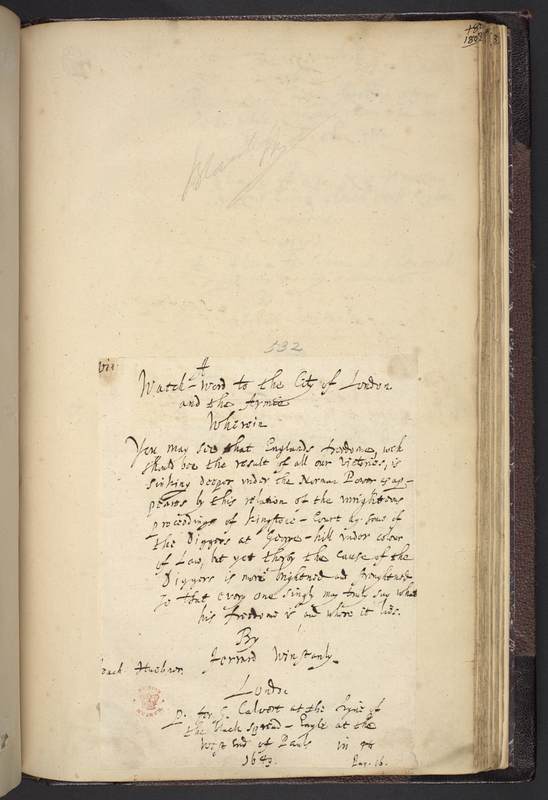 532
vii.
A
Watch-Word to the City of London
and the Armie
Wherein
You may see that Englands freedome, wch
should bee the result of all our victories, is
sinking deeper under the Norman Power as ap-
peares by this relation of the unrighteous
proceedings of Kingston-Court ag. some of
the Diggers at George-hill under colour
of Law, but yet therby the cause of the
Diggers is more brightned and strengthned
So that every one singly may truly say what
his freedome is and where it lies.
By
Jerrard Winstanly
Londō
P. for G. Calvert at the Signe of
the black spread-Eagle at the
West end of Pauls in 4t
1649. Pag. 16.